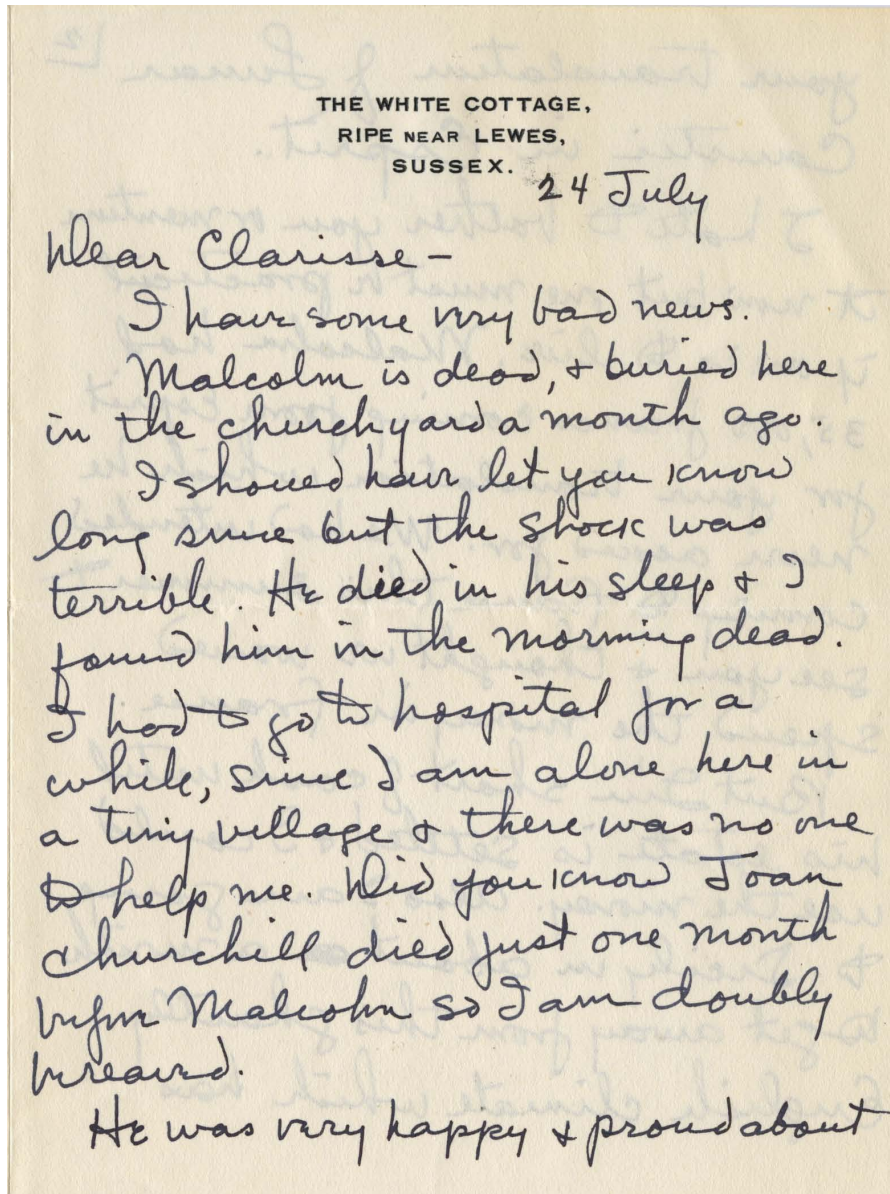 THE WHITE COTTAGE,
RIPE NEAR LEWES,
SUSSEX.
24 July
Dear Clarisse –
I have some very bad news.
Malcolm is dead, + buried here
in the churchyard a month ago.
I should have let you know
long since but the shock was
terrible. He died in his sleep + I
found him in the morning dead.
I had to go to hospital for a
while, since I am alone here in
a tiny village + there was no one
to help me. Did you know Joan
Churchill died just one month
before Malcolm so I am doubly
bereaved.
He was very happy + proud about